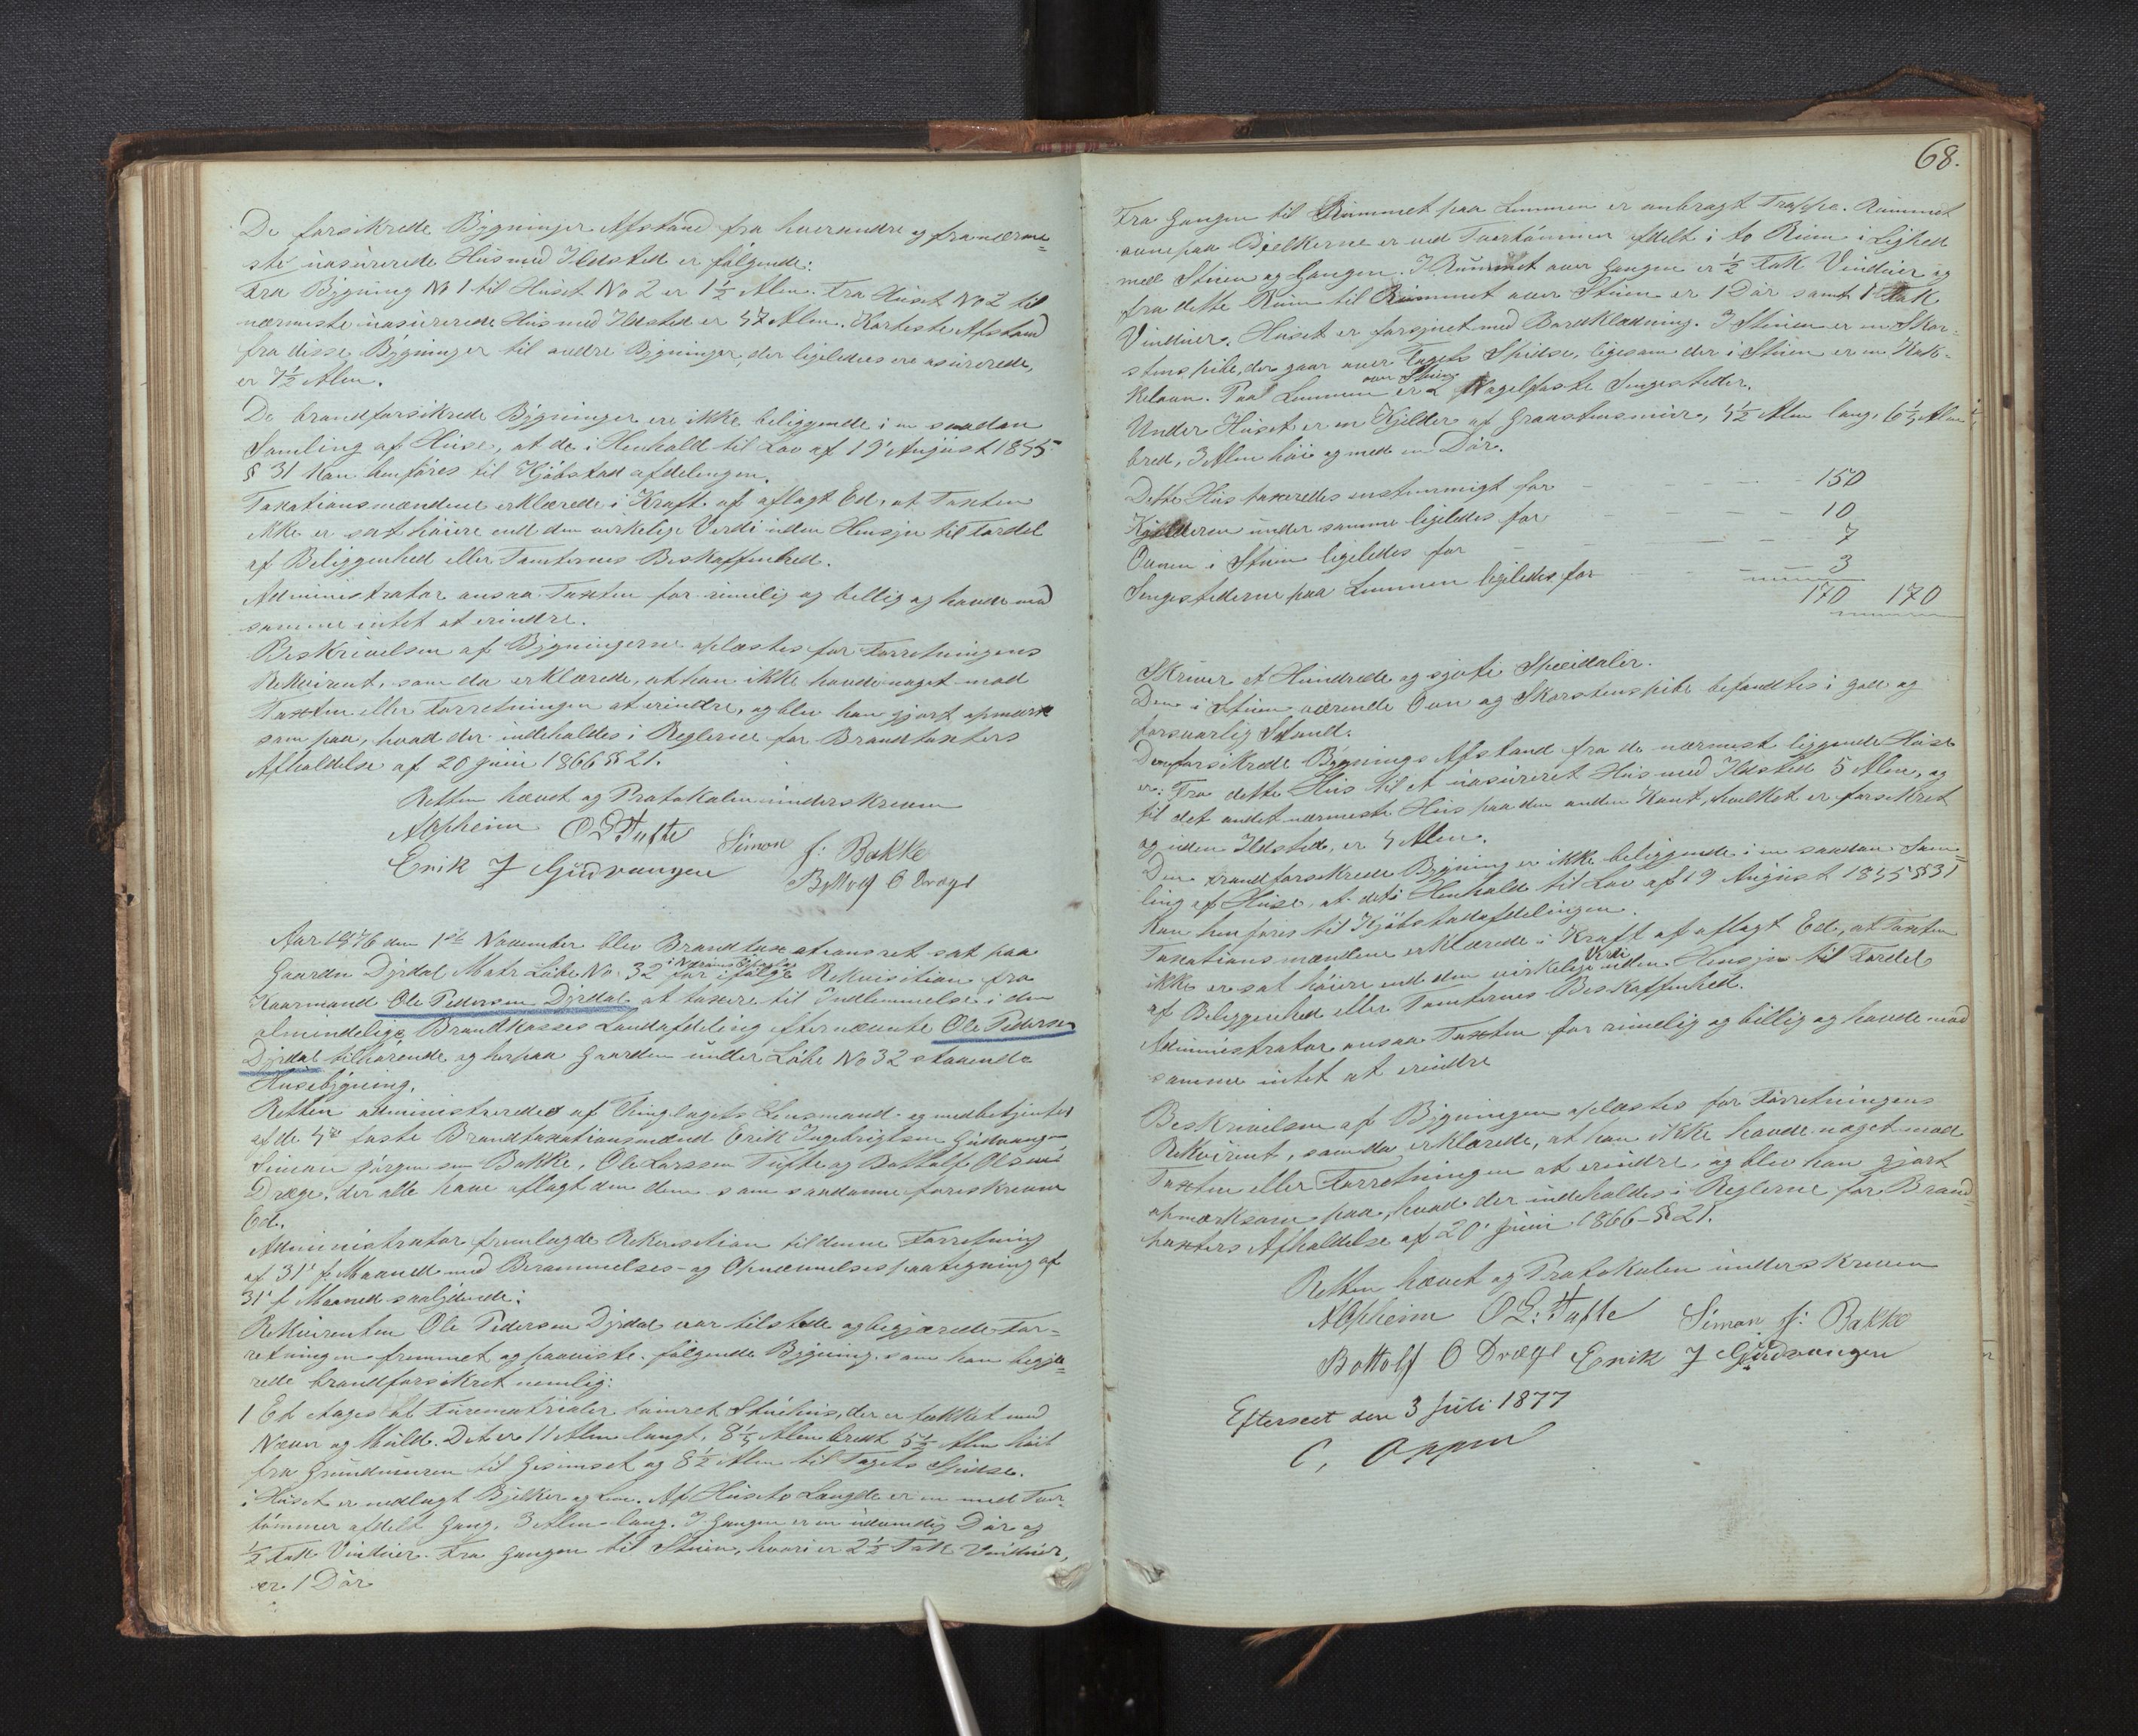 De forsikrede Bygningers Afstand fra hverandre og fra nærme=
ste uasurerede Hus med Ildsted er følgende:
Fra Bygning No 1 til Huset No 2 er 1½ Alen. Fra Huset No 2 til
nærmeste uasurerede Hus med Ildsted er 47 Alen. Korteste Afstand
fra disse Bygninger til andre Bygninger, der ligeledes ere asurerede,
er 7½ Alen.
De brandforsikrede Bygninger ere ikke beliggende i en saadan
Samling af Huse, at de i Henhold til Lov af 19' August 1845
§ 31 kan henføres til Kjøbstadafdelingen.
Taxationsmændene erklærede i Kraft af aflagt Ed, at Taxten
ikke er sat høiere end den virkelige Verdi uden Hensyn til Fordel
af Beliggenhed eller Tomternes Beskaffenhed.
Administrator ansaa Taxten for rimelig og billig og havde mod
samme intet at erindre.
Beskrivelsen af Bygningerne oplæstes for Forretningens
Rekvirent, som da erklærede, at han ikke havde noget mod
Taxten eller Forretningen at erindre, og blev han gjort opmærk
som paa, hvad der indeholdes i Reglerne for Brandtaxters
Afholdelse af 20 juni 1866 § 21.
Retten hævet og Protokolen underskreven
Alpheim O L Tufte Simon J: Bakke
Erik J Gudvangen Bottolf O Drægi
Aar 1876 den 1ste November blev Brandtaxationsret sat paa
Gaarden Dyrdal Matr Løbe No. 32 i Nærøens for ifølge Rekvisition fra
Kaarmand Ole Pedersen Dyrdal at taxere til Indlemmelse i den
almindelige Brandkasses Landafdeling efternævnte Ole Pedersen
Dyrdal tilhørende og herpaa Gaarden under Løbe No 32 staaende
Husebygning.
Retten administreredes af Thinglagets Lensmand og medbetjentes
af de 4re faste Brandtaxationsmænd Erik Ingebrigtsen Gudvangen
Simon Jørgensen Bakke, Ole Larssen Tufte og Bottolf Olsen
Dræge, der alle have aflagt den dem som saadanne foreskreven
Ed.
Administrator fremlagde Rekvisition til denne Forretning
af 31' f Maaned med Berammelses- og Opnævnelsespaategning af
31' f Maaned saalydende:
Rekvirenten Ole Pedersen Dyrdal var tilstede og begjærede For=
retningen fremmet og paaviste følgende Bygning, som han begjæ=
rede brandforsikret nemlig:
1 Et Etages af Furematrialer tømret Stuehus, der er tækket med
Næver og Muld. Det er 11 Alen langt, 8¼ Alen bredt 5½ Alen høit
fra Grundmuren til Gesimset og 8½ Alen til Tagets Spidse.
i Huset er nedlagt Bjelker og Lem. Af Husets Længde er en med Tver
tømmer afdelt Gang, 3 Alen lang. I Gangen er en udvendig Dør og
½ Fak Vinduer. Fra Gangen til Stuen, hvori er 2½ Fak Vinduer,
er 1 Dør
68.
Fra Gangen til Rummet paa Lemmen er anbragt Trappe. Rummet
ovenpaa Bjelkerne er ved Tvertømmer afdelt i to Rum i Lighed
med Stuen og Gangen. I Rummet over Gangen er ½ Fak Vinduer og
fra dette Rum til Rummet over Stuen er 1 Dør samt 1 Fak
Vinduer. Huset er forsynet med Bordklædning. I Stuen er en Skor=
stenspibe, der gaar over Tagets Spidse, ligesom der i Stuen er en Kak=
kelovn. Paa Lemmen over Stuen er 2 Nagelfaste Sengesteder.
Under Huset er en Kjelder af Graastensmur, 4½ Alen lang, 6¼ Alen
bred, 3 Alen høi og med en Dør.
Dette Hus taxeredes enstemmigt for - - - - 150
Kjelderen under samme ligeledes for - - - - 10
Ovnen i Stuen ligeledes for - - - - 7
Sengestederne paa Lemmen ligeledes for - - - - 3
170 170
Skriver et Hundrede og sjøti Speidaler.
Den i Stuen værende Ovn og Skorstenspibe befandtes i god og
forsvarlig Stand.
Den forsikrede Bygnings Afstand fra de nærmest liggende Huse
er: Fra dette Hus til et uasureret Hus med Ildsted 5 Alen, og
til det andet nærmeste Hus paa den anden Kant, hvilket er forsikret
og uden Ildsted, er 4 Alen.
Den brandforsikrede Bygning er ikke beliggende i en saadan Sam=
ling af Huse, at det i Henhold til Lov af 19 August 1845 § 31
kan henføres til Kjøbstadafdelingen.
Taxationsmændene erklærede i Kraft af aflagt Ed, at Taxten
ikke er sat høiere end den virkelige Verdi uden Hensyn til Fordel
af Beliggenhed eller Tomternes Beskaffenhed.
Administrator ansaa Taxten for rimelig og billig og havde mod
samme intet at erindre
Beskrivelsen af Bygningen oplæstes for Forretningens
Rekvirent, som da erklærede, at han ikke havde noget mod
Taxten eller Forretningen at erindre, og blev han gjort
opmærksom paa, hvad der indeholdes i Reglerne for Brand=
taxters Afholdelse af 20' juni 1866 - § 21.
Retten hævet og Protokolen underskreven
Alpheim O L: Tufte Simon J: Bakke
Bottolf O Drægi Erik J Gudvangen
Efterseet den 3 Juli 1877
C. Oppen